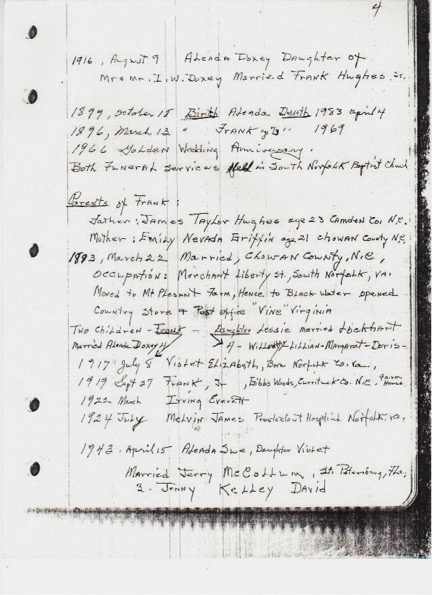 4
1916, August 9 Aleada Doxey Daughter of
Mr & Mr. I. W. Doxey Married Frank Hughes, Sr.
1899, October 15 Birth Aleada Death 1983 April 4
1896, March 13 " Frank " 1969
1966 Golden Wedding Anniversary.
Both Funeral Services Held in South Norfolk Baptist Church
Parents of Frank:
Father: James Taylor Hughes age 23 Camden Co. N.C.
Mother: Emily Nevada Griffin age 21 Chowan County N.C.
1893, March 22 Married, Chowan County, N.C.,
Occupation: Merchant Liberty St. South Norfolk, Va.
Moved to Mt Plesant Farm, Hence to Black Water opened
Country Store & Post Office "Vine" Virginia
Two Children - Frank - Daughter Lessie married Lockhart
Married Aleada Doxey 4 4 - Lillian - Margaret - Doris -
1917 July 8 Violet Elizabyth, Born Norfolk Co. Va.,
1919 Sept 27 Frank, Jr, Gibbs Woods, Currituck Co. N.C. Farm House
1922 March Irving Everett
1924 July Melvin James Hospital Norfolk Va.
1943 - April 15 Aleada Sue, Daughter Violet
Married Jerry McCollum, St. Petersburg, Fla.
3 - Jenny Kelley David